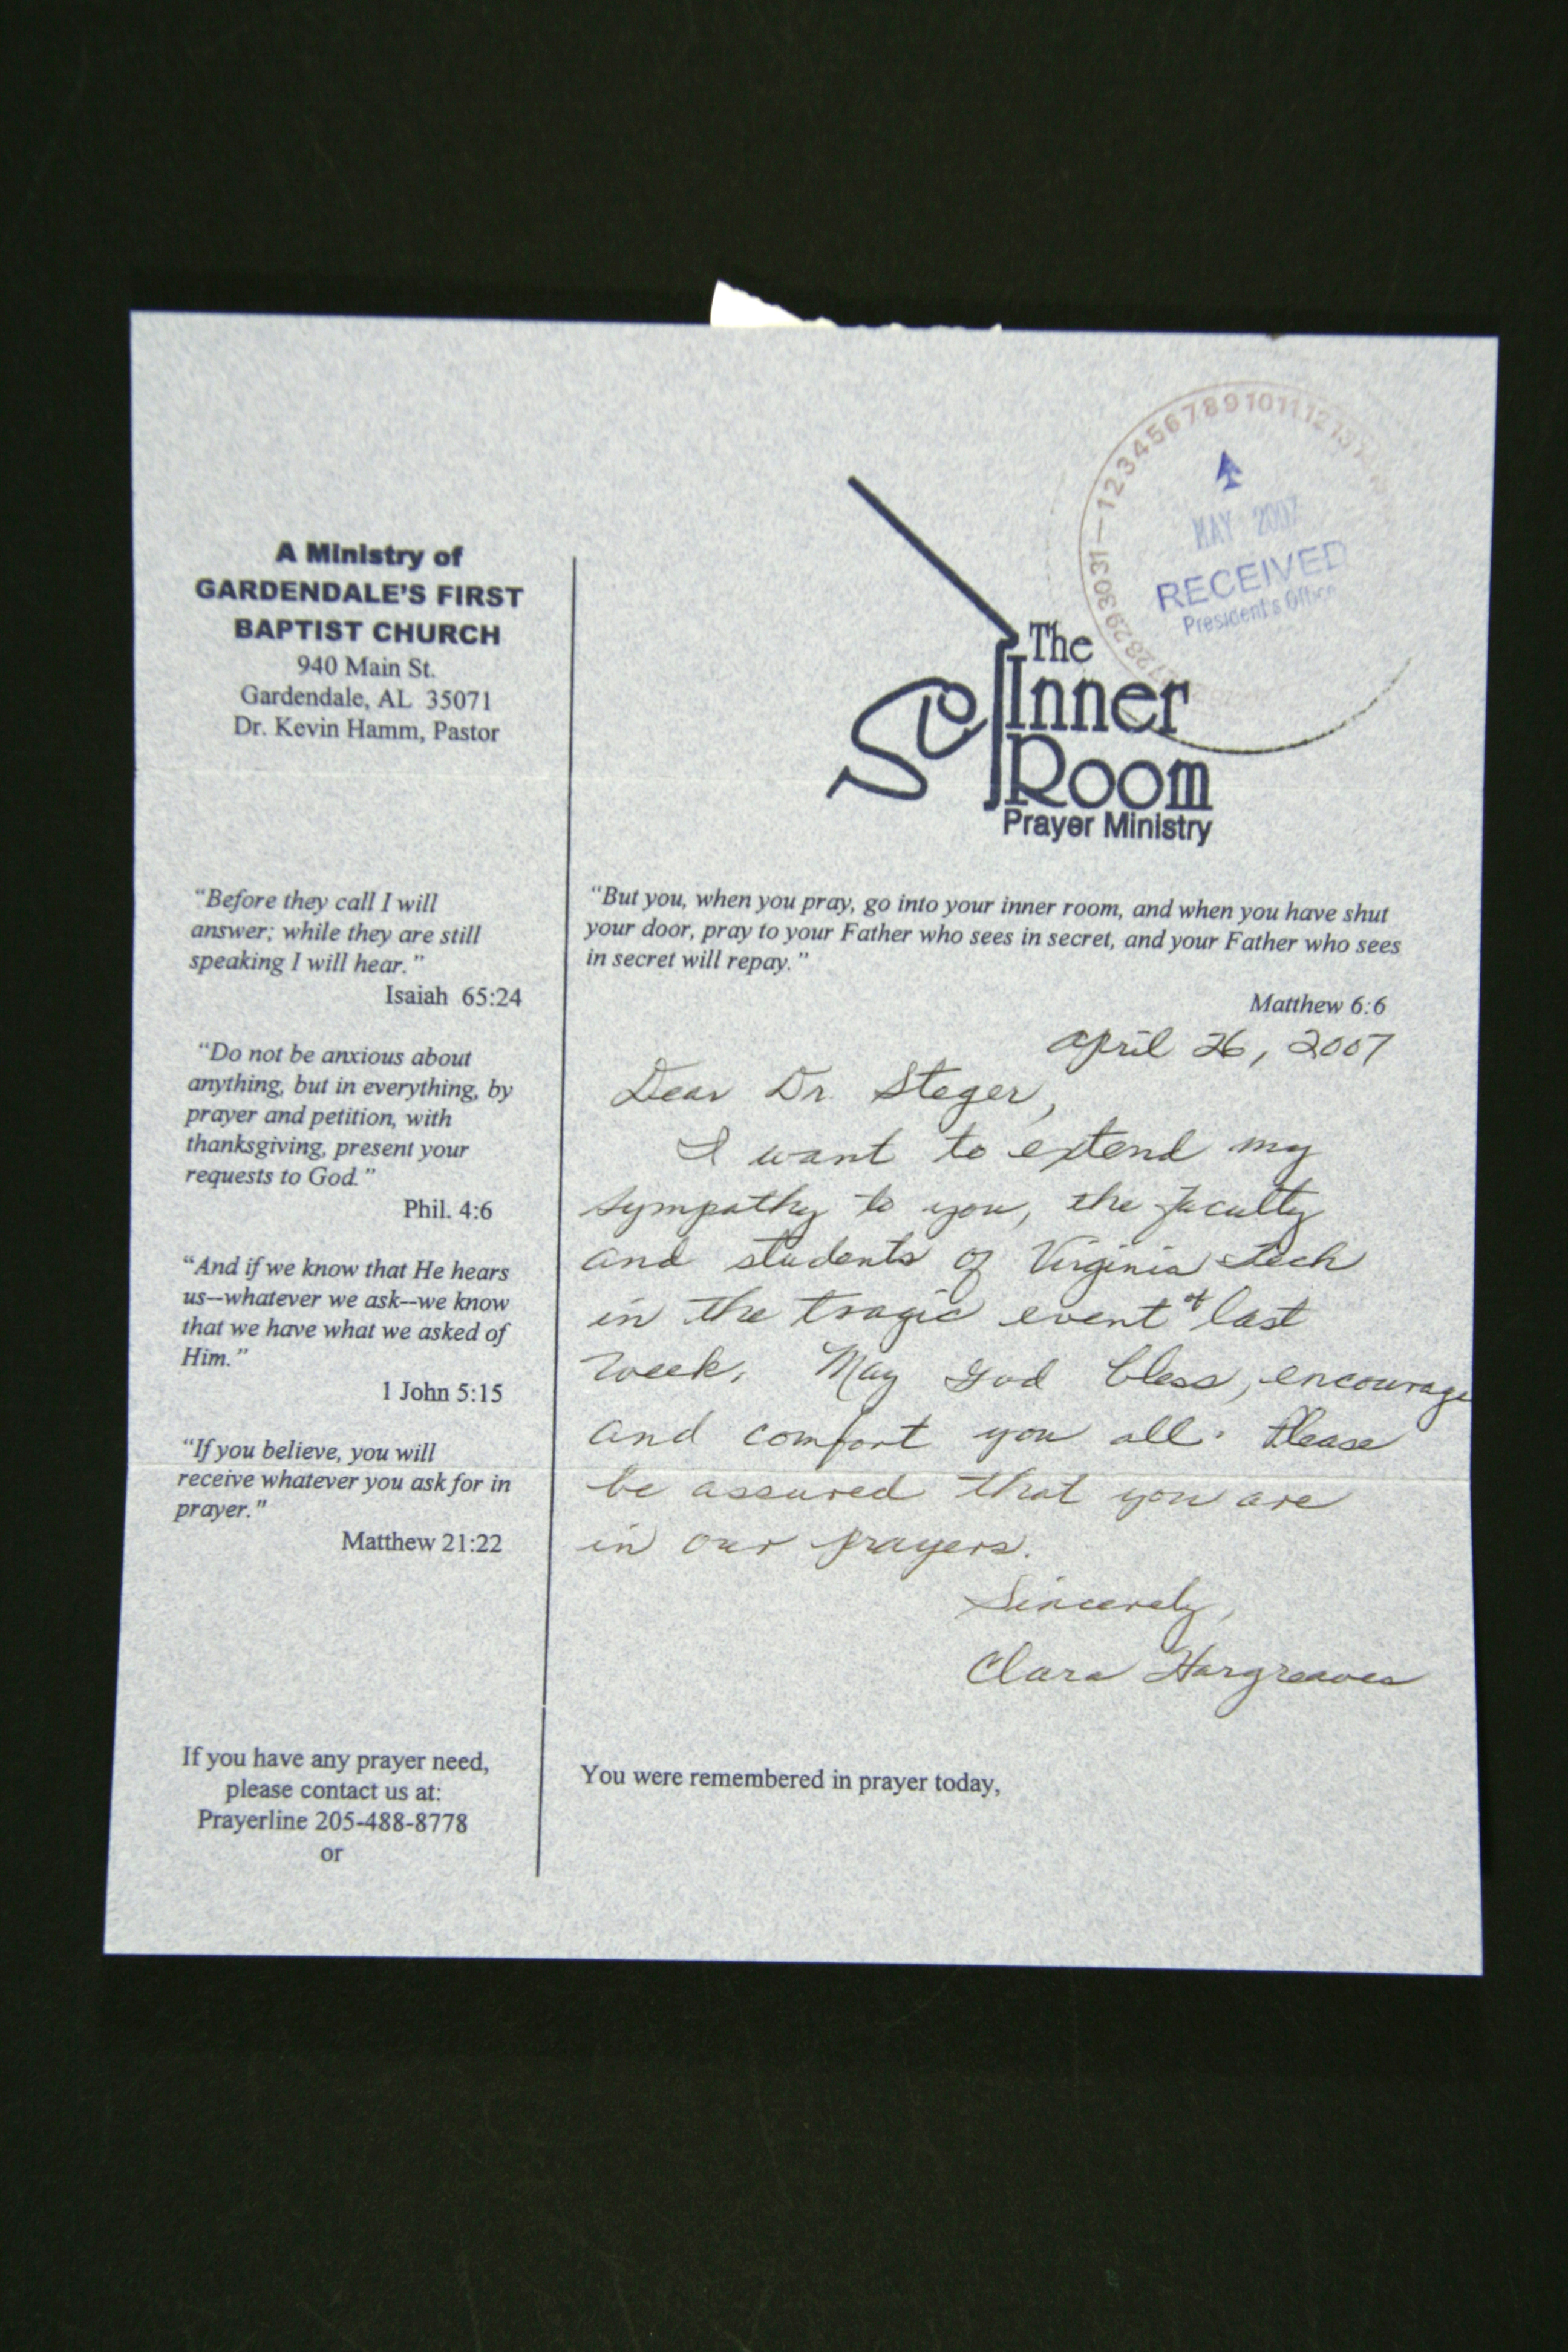 A Ministry of
GARDENDALE'S FIRST
BAPTIST CHURCH
940 Main St.
Gardendale, AL 35071
Dr. Kevin Hamm, Pastor
"Before they call I will
answer; while they are still
speaking I will hear."
Isaiah 65:24
"Do not be anxious about
anything, but in everything, by
prayer and petition, with
thanksgiving, present your
requests to God."
Phil. 4:6
"And if we know that He hears
us--whatever we ask--we know
that we have what we asked of
Him."
1 John 5:15
"If you believe, you will
receive whatever you ask for in
prayer."
Matthew 21:22
If you have any prayer need,
please contact us at:
Prayerline 205-488-8778
or
1 2 3 4 5 6 7 8 9 10 11 12 13
28 29 30 31
MAY 2007
RECEIVED
President's Office
The
Inner
Room
Prayer Ministry
"But you, when you pray, go into your inner room, and when you have shut
your door, pray to your Father who sees in secret, and your Father who sees
in secret will repay."
Matthew 6:6
April 26, 2007
Dear Dr. Steger,
I want to extend my
sympathy to you, the faculty
and students of Virginia Tech
in the tragic event of last
week. May God bless, encourage
and comfort you all. Please
be assured that you are
in our prayers.
Sincerely,
Clara Hargreaves
You were remembered in prayer today,